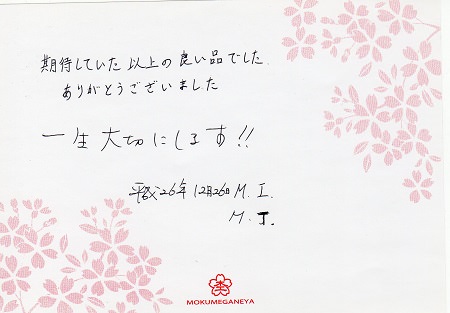 期待していた以上の良い品でした
ありがとうございました
一生大切にします!!
平成26年12月26日 M. I.
M. I.
MOKUMEGANEYA